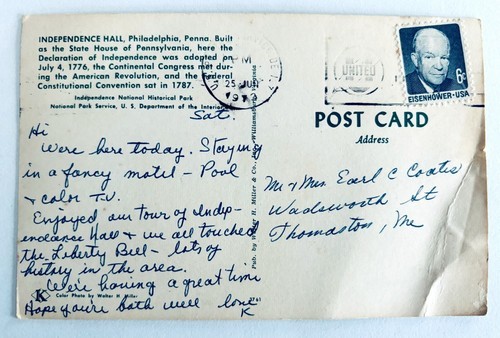 INDEPENDENCE HALL, Philadelphia, Penna. Built
as the State House of Pennsylvania, here the
Declaration of Independence was adopted on
July 4, 1776, the Continental Congress met dur-
ing the American Revolution, and the Federal
Constitutional Convention sat in 1787.
Independence National Historical Park
National Park Service, U. S. Department of the Interior
PM
25 JUN
UNITED
6¢
EISENHOWER·USA
Sat.
Hi
Were here today. Staying
in a fancy motel - Pool
& color T.V.
Enjoyed our tour of Indep-
endance Hall & we all touched
the Liberty Bell - lots of
history in the area.
We're having a great time
Hope you're both well love
K
K
Color Photo by Walter H. Miller
Pub. by Walter H. Miller & Co., Williamsburg,
POST CARD
Address
Mr & Mrs Earl C Coates
Wadsworth St
Thomaston, Me